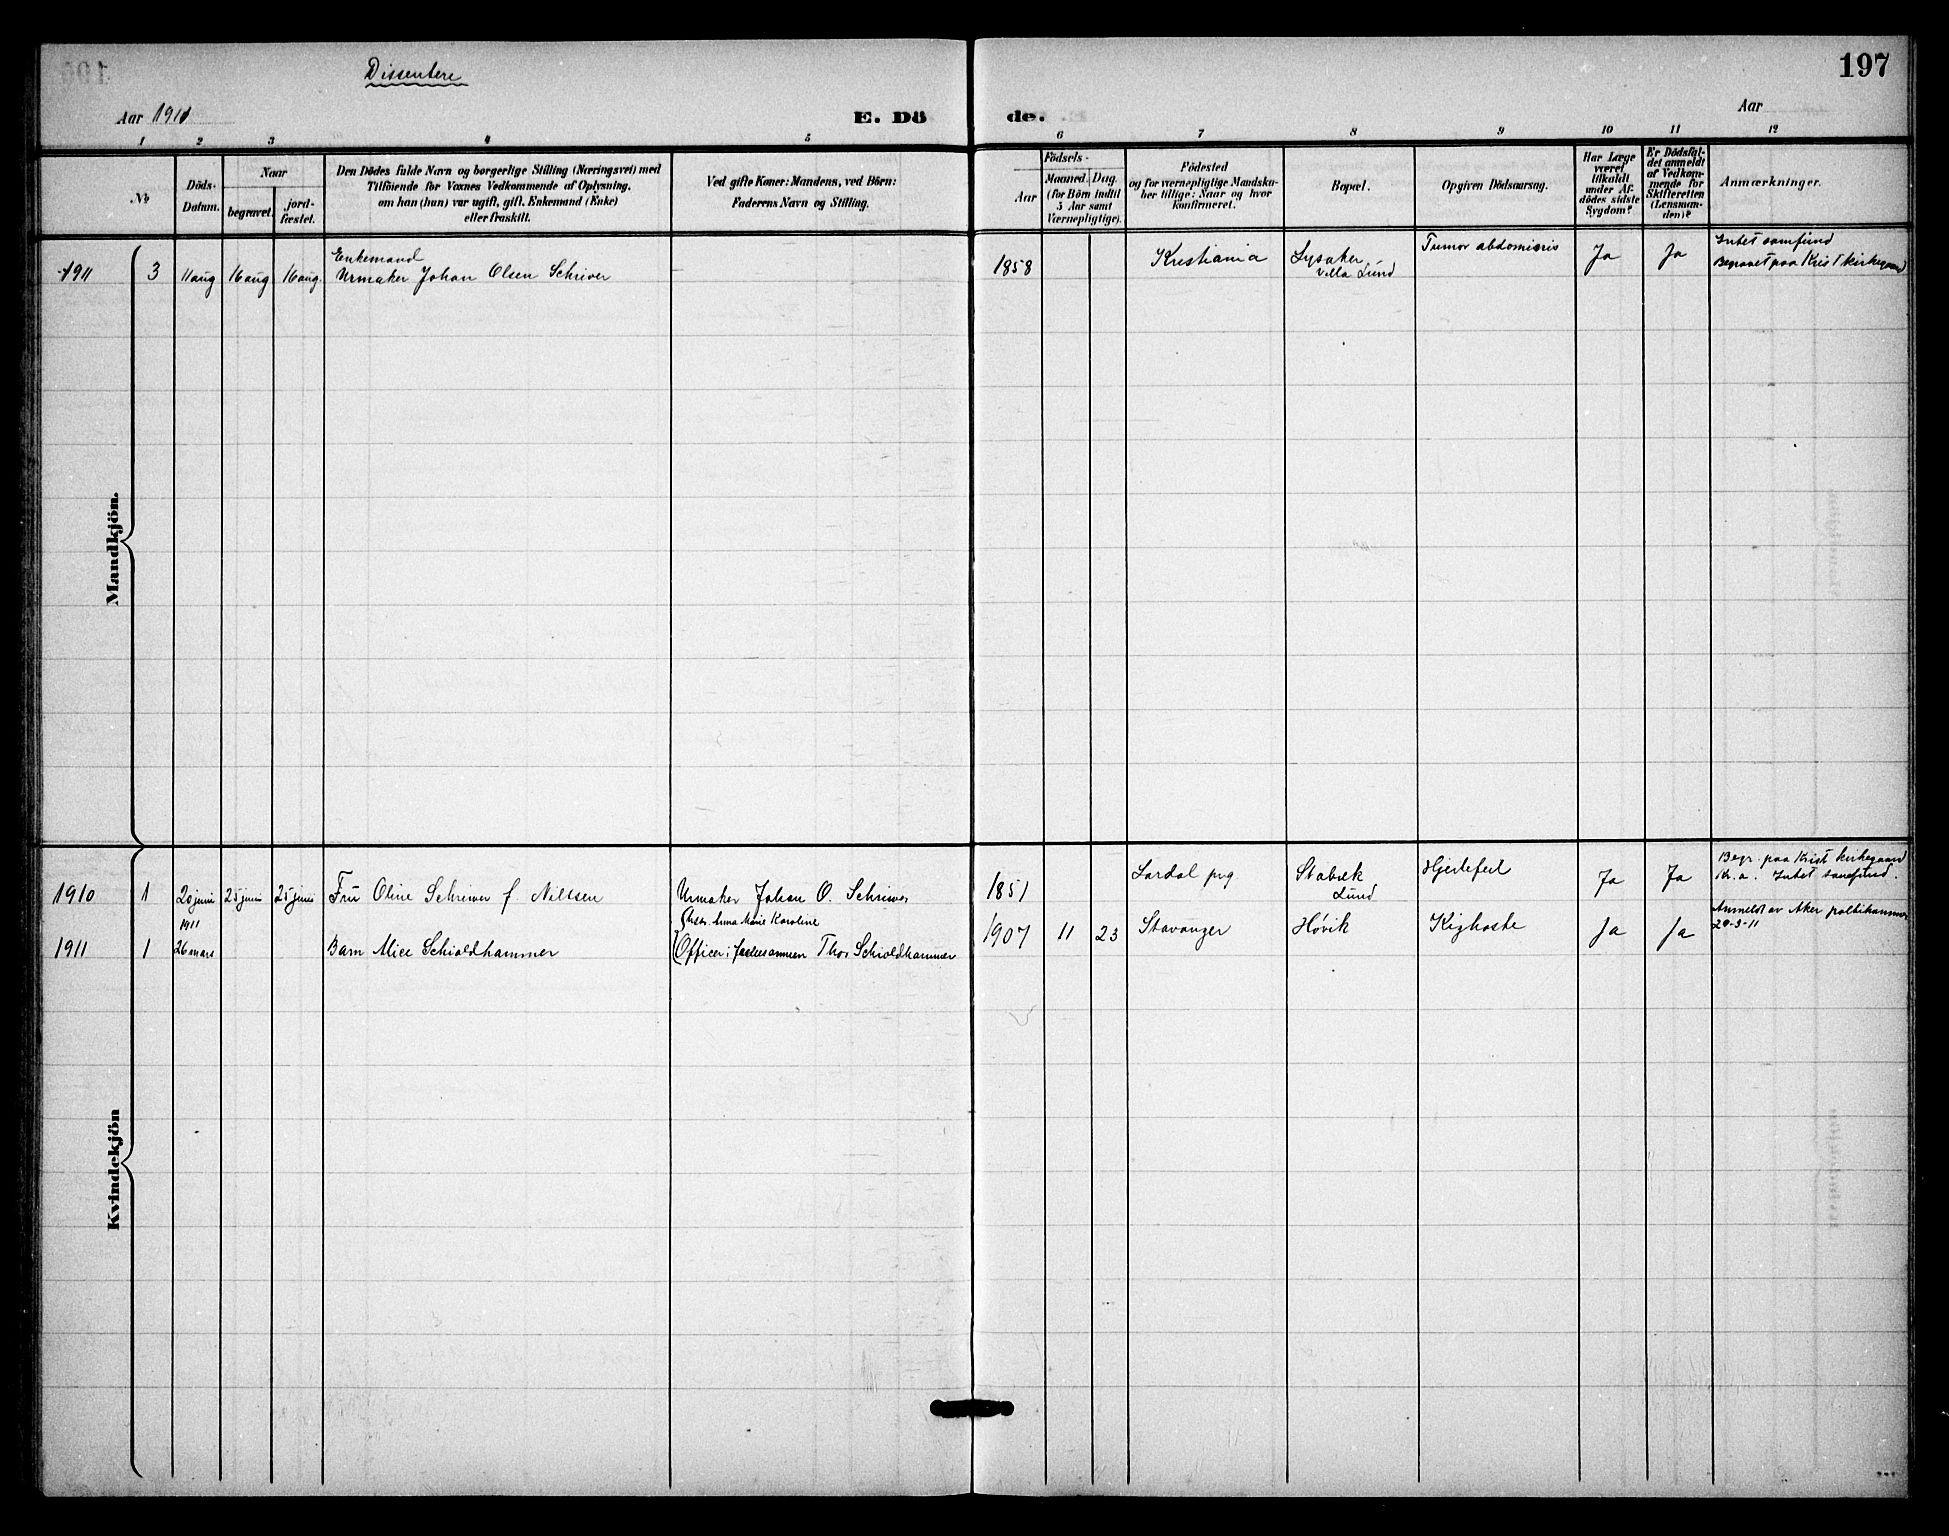 Dissentere
197
Aar 1911
E. Döde.
Aar
1 2 3 4 5 6 7 8 9 10 11 12
No
Döds-Datum.
Naar
begravet.
jordfæstet.
Den Dödes fulde Navn og borgerlige Stilling (Næringsvei) med
Tilföiende for Voxnes Vedkommende af Oplysning,
om han (hun) var ugift, gift, Enkemand (Enke)
eller fraskilt.
Ved gifte Koner: Mandens, ved Börn:
Faderens Navn og Stilling.
Födsels-
Aar
Maaned. Dag.
(for Börn indtil
5 Aar samt
Værnepligtige).
Födested
og for værnepligtige Mandskaber tillige: Naar og hvor
konfirmeret.
Bopæl.
Opgiven Dödsaarsag.
Har Læge
været
tilkaldt
under Afdödes sidste
Sygdom?
Er Dödsfaldet anmeldt
af Vedkommende for
Skifteretten
(Lensmanden)?
Anmærkninger.
Mandkjön.
1911 3 11 aug 16 aug 16 aug.
Enkemand
Urmaker Johan Olsen Schriver
—
1858
Kristiania
Lysaker
Villa Lund
Tumor abdominis
Ja
Ja
Intet samfund
Begravet paa Krist kirkegaard
Kvindekjön
1910 1 20 juni 25 juni 25 juni
Fru Oline Schriver f. Nilssen
Urmaker Johan O. Schriver
1851
Lardal prg
Stabæk
Lund
Hjertefeil
Ja
Ja
Begr. paa Krist kirkegaard
Kr.a. Intet samfund.
1911 1
1911
26 mars
Barn Alice Schioldhammer
Anna Marie Karoline
Officer i Frelsesarmeen Thos Schioldhammer
1907 11 23
Stavanger
Høvik
Kighoste
Ja
Ja
Anmeldt av Aker politikammer
29-3-11